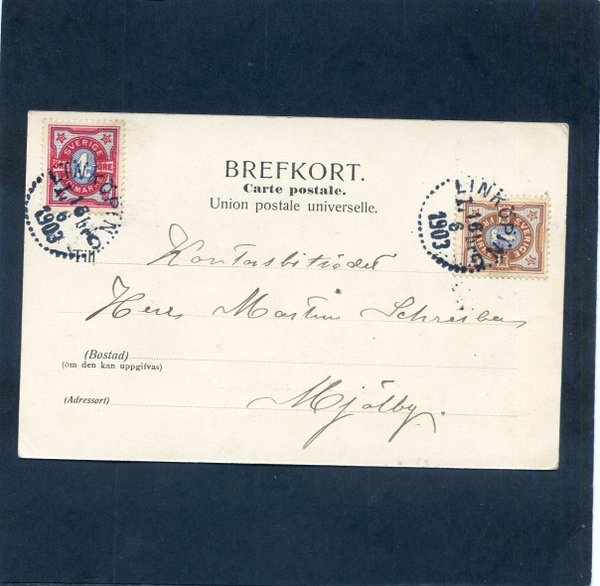 SVERIGE
1
ÖRE
LINKÖPING
1903
6
BREFKORT.
Carte postale.
Union postale universelle.
LINKÖPING
SVERIGE
6
1903
Kontorsbiträdet
Herr Martin Schreiber
(Bostad)
(om den kan uppgifvas)
(Adressort)
Mjölby.